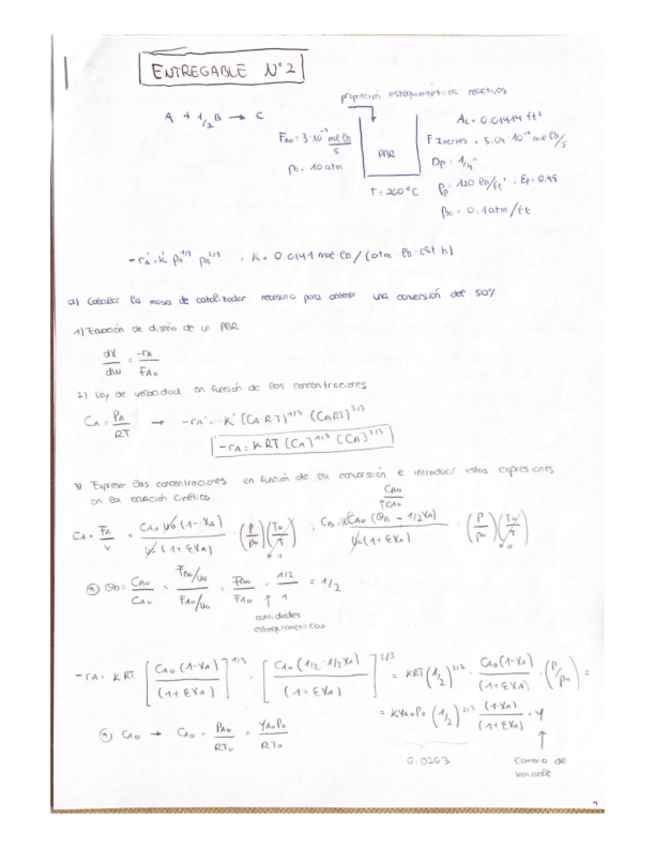 ENTREGABLE Nº2
proporción estequiométrica reactivos
A + 1/2 B → C
Ac = 0.01414 ft²
FA0 = 3·10⁻⁴ mol lb/s
F Inertes = 5.04·10⁻⁴ mol lb/s
PBR
P0 = 10 atm
Dp = 1/4"
T = 260°C
ρp = 120 lb/ft³ ; Ep = 0.45
β0 = 0.1 atm/ft
-rA' = k' pA^1/3 pB^2/3 ; K = 0.0141 mol lb/(atm · lb cat · h)
a) Calcular la masa de catalizador necesaria para obtener una conversión del 50%
1) Ecuación de diseño de un PBR
dX/dW = -rA/FA0
2) Ley de velocidad en función de las concentraciones
CA = PA/RT → -rA' = K' (CA·R·T)^1/3 · (CB RT)^2/3
-rA = K RT [CA]^1/3 [CB]^2/3
3) Expresar las concentraciones en función de la conversión e introducir estas expresiones
en la ecuación cinética
CA0
↑CA0
CA = FA/v = CA0 v0 (1-XA)/v0 (1+εXA) · (P/P0)(T0/T) ; CB = v0 CA0 (ΘB - 1/2 XA)/v0 (1+εXA) · (P/P0)(T0/T)
* ΘB = CB0/CA0 = FB0/v0 / FA0/v0 = FB0/FA0 = 1/2 / 1 = 1/2
cantidades
estequiométricas
-rA = K RT [CA0 (1-XA)/(1+εXA)]^1/3 · [CA0 (1/2 - 1/2 XA)/(1+εXA)]^2/3 = KRT (1/2)^2/3 · CA0 (1-XA)/(1+εXA) · (P/P0) =
= K YA0 P0 (1/2)^2/3 (1-XA)/(1+εXA) · y
* CA0 → CA0 = PA0/RT0 = YA0 P0/RT0
0.0263
Cambio de
variable
1